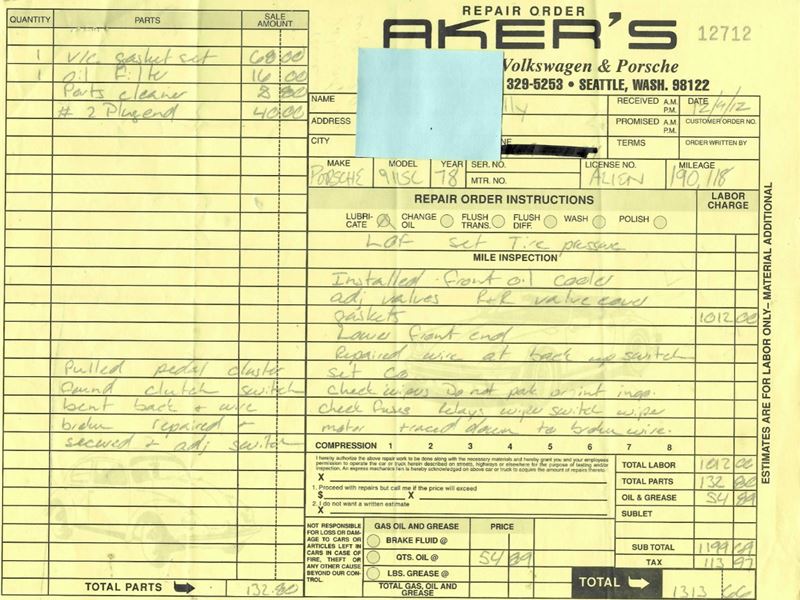 REPAIR ORDER
AKER'S
12712
Volkswagen & Porsche
329-5253 • SEATTLE, WASH. 98122
QUANTITY PARTS SALE AMOUNT
1 v/c gasket set 68.00
1 oil Filter 16 00
Parts cleaner 8 80
# 2 Plug end 40.00
NAME lly RECEIVED A.M. P.M. DATE 12/9/12
ADDRESS PROMISED A.M. P.M. CUSTOMER ORDER NO.
CITY NE TERMS ORDER WRITTEN BY
MAKE MODEL YEAR SER. NO. LICENSE NO. MILEAGE
PORSCHE 911SC 78 MTR. NO. ALIEN 190,118
REPAIR ORDER INSTRUCTIONS LABOR CHARGE
LUBRI-CATE CHANGE OIL FLUSH TRANS. FLUSH DIFF. WASH POLISH
LOF set Tire pressure
MILE INSPECTION
Installed front oil cooler
adj valves R+R valve cover
gaskets 1012 00
Lower front end
Repaired wire at back up switch
set Co
check wipers Do not park or int inop.
check fuses Relays wiper switch wiper
motor traced down to broken wire.
Pulled pedal cluster
found clutch switch
bent back + wire
broken repaired +
secured + adj switch
ESTIMATES ARE FOR LABOR ONLY– MATERIAL ADDITIONAL
COMPRESSION 1 2 3 4 5 6 7 8
I hereby authorize the above repair work to be done along with the necessary materials and hereby grant you and your employees
permission to operate the car or truck herein described on streets, highways or elsewhere for the purpose of testing and/or
inspection. An express mechanics lien is hereby acknowledged on above car or truck to secure the amount of repairs thereto:
X
1. Proceed with repairs but call me if the price will exceed
$ X
2. I do not want a written estimate
X
TOTAL LABOR 1012 00
TOTAL PARTS 132 80
OIL & GREASE 54 89
SUBLET
SUB TOTAL 1199 69
TAX 113 97
TOTAL 1313 66
NOT RESPONSIBLE
FOR LOSS OR DAM-
AGE TO CARS OR
ARTICLES LEFT IN
CARS IN CASE OF
FIRE, THEFT OR
ANY OTHER CAUSE
BEYOND OUR CON-
TROL.
GAS OIL AND GREASE PRICE
BRAKE FLUID @
QTS. OIL @ 54 89
LBS. GREASE @
TOTAL GAS, OIL AND GREASE
TOTAL PARTS 132.80